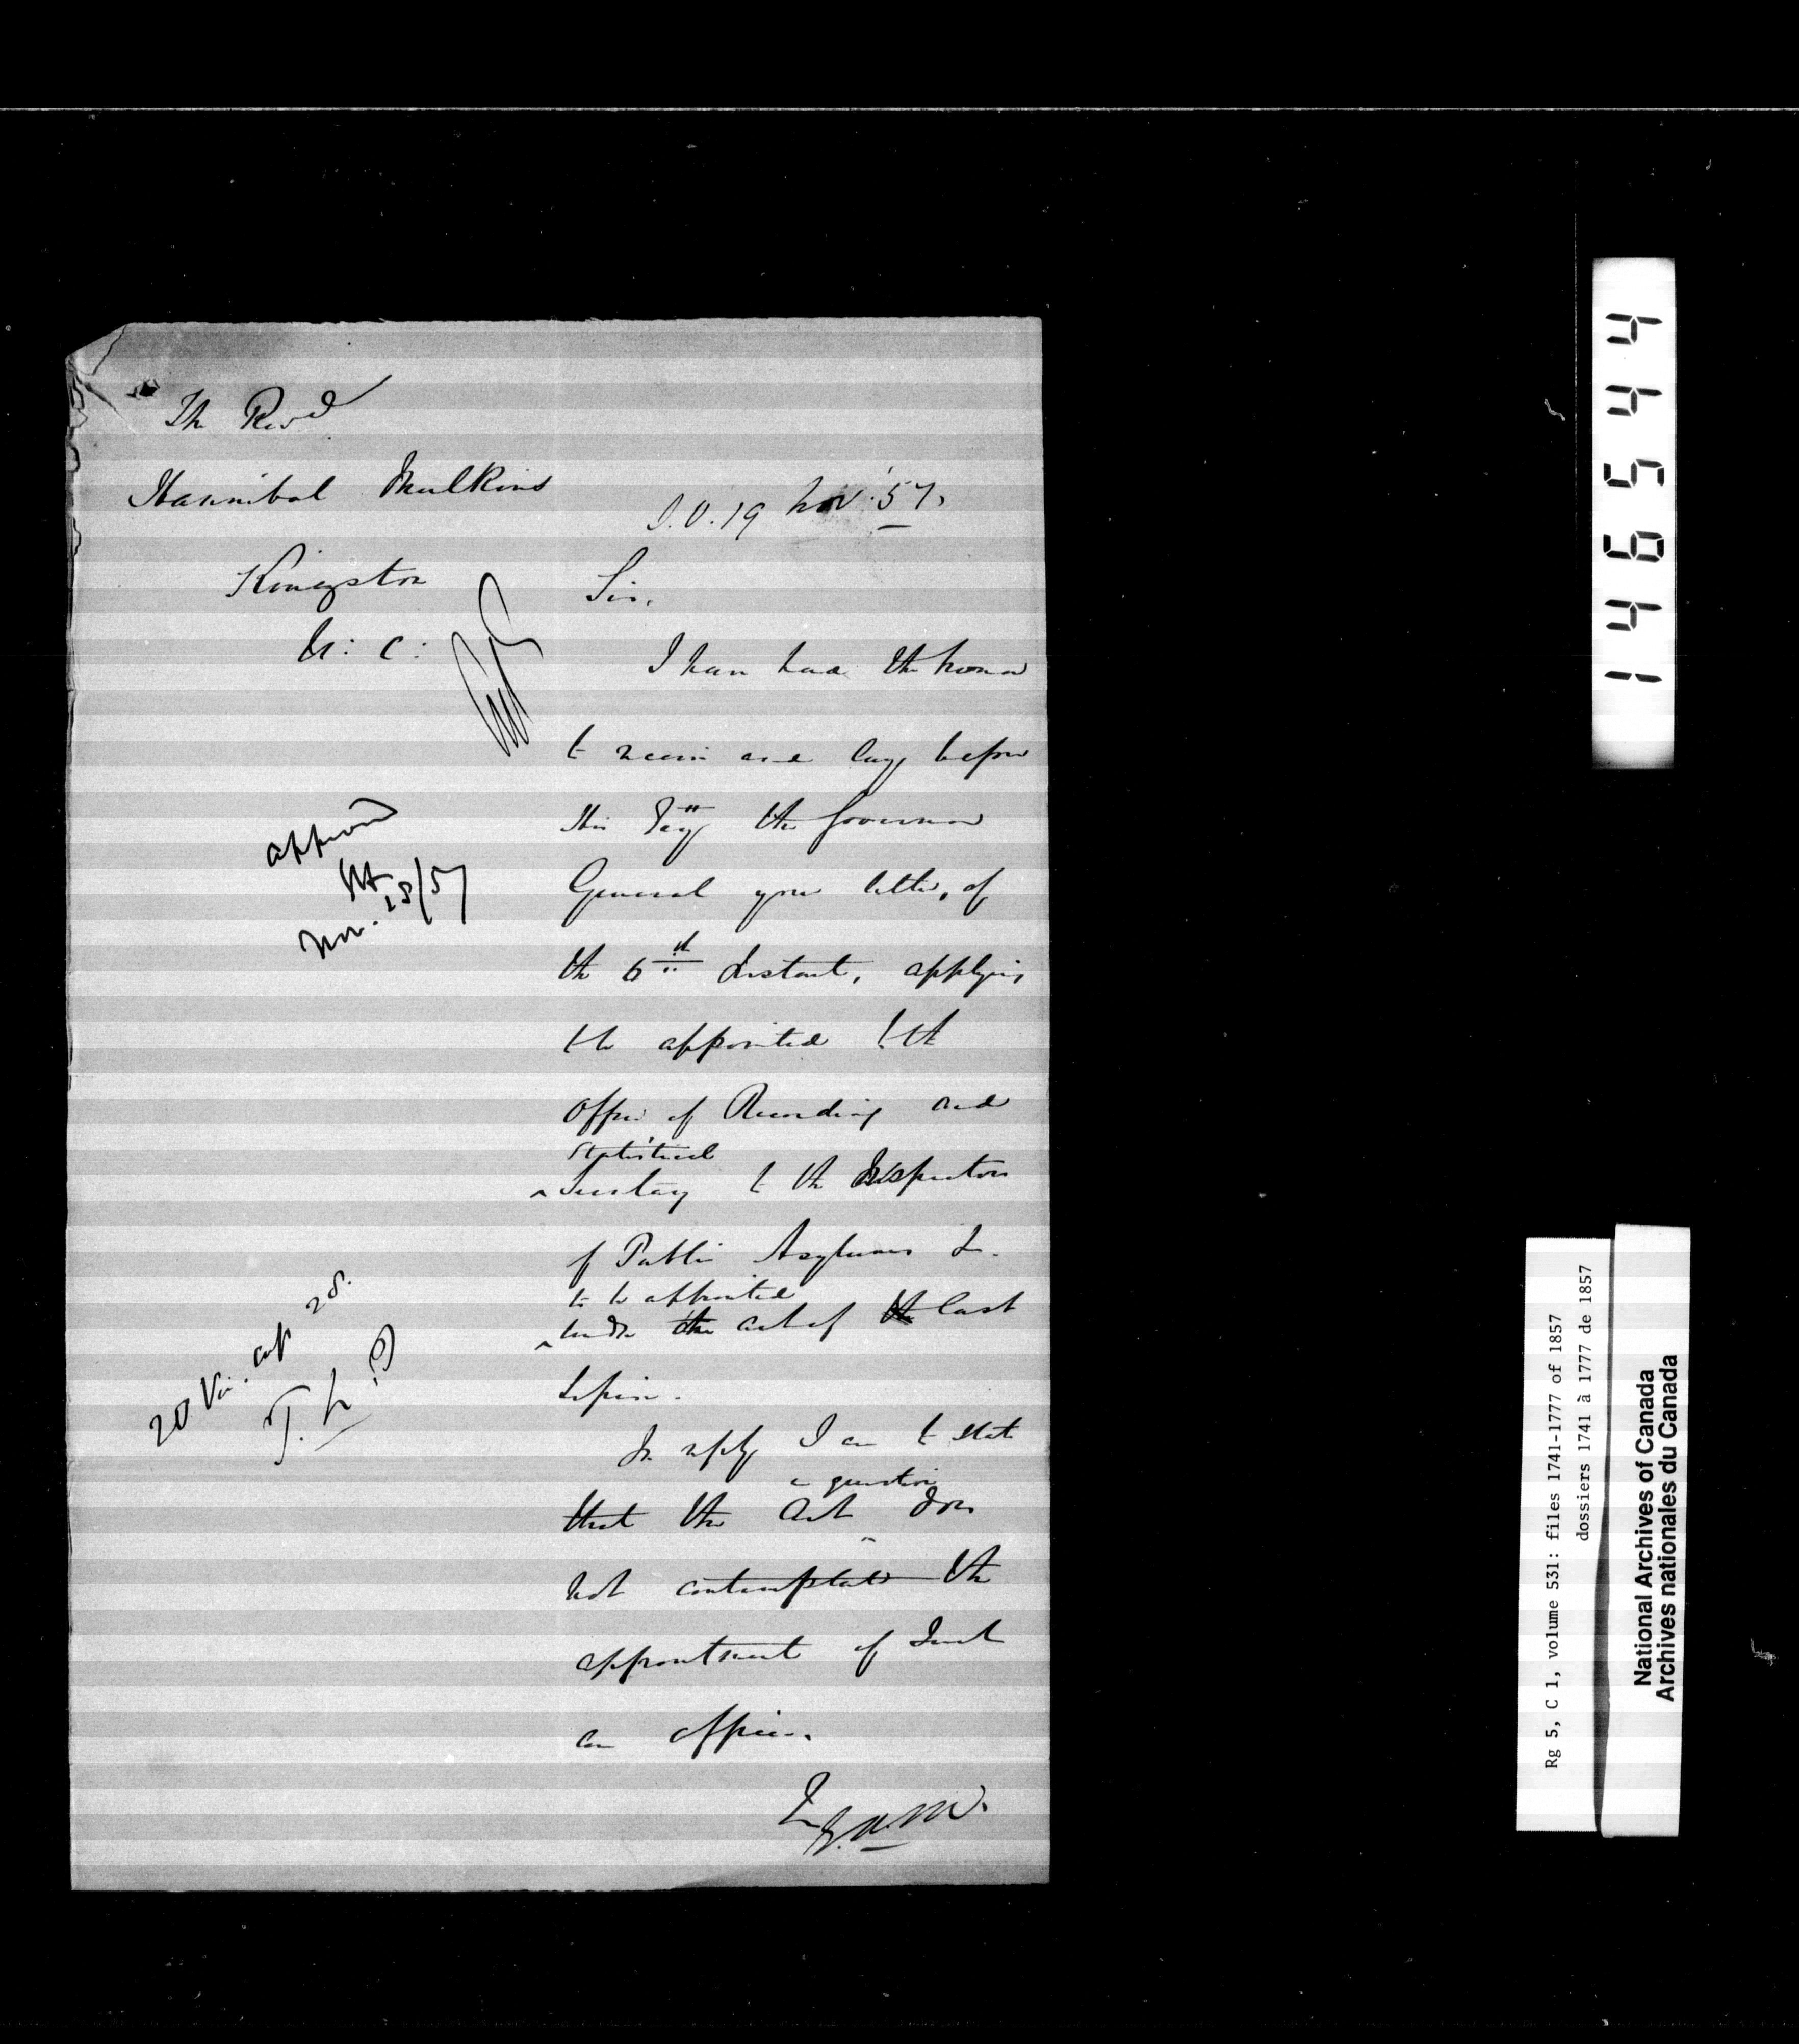 The Revd
Hannibal Mulkins
Kingston
U: C:
S.O. 19 Nov. '57.
Sir,
I have had the honor
to receive and lay before
His Excy the Governor
General your letter, of
the 6th Instant, applying
to be appointed to the
Office of Recording and
Statistical
Secretary to the Inspectors
of Public Asylums &c.
to be appointed
under the act of the last
Session.
In reply I am to state
in question
that the Act does
not contemplate the
appointment of such
an officer.
I h. t. h.
approved
Nov. 28/57
20 Vic. cap 28.
T. L.
146544
Rg 5, C 1, volume 531: files 1741-1777 of 1857
dossiers 1741 à 1777 de 1857
National Archives of Canada
Archives nationales du Canada